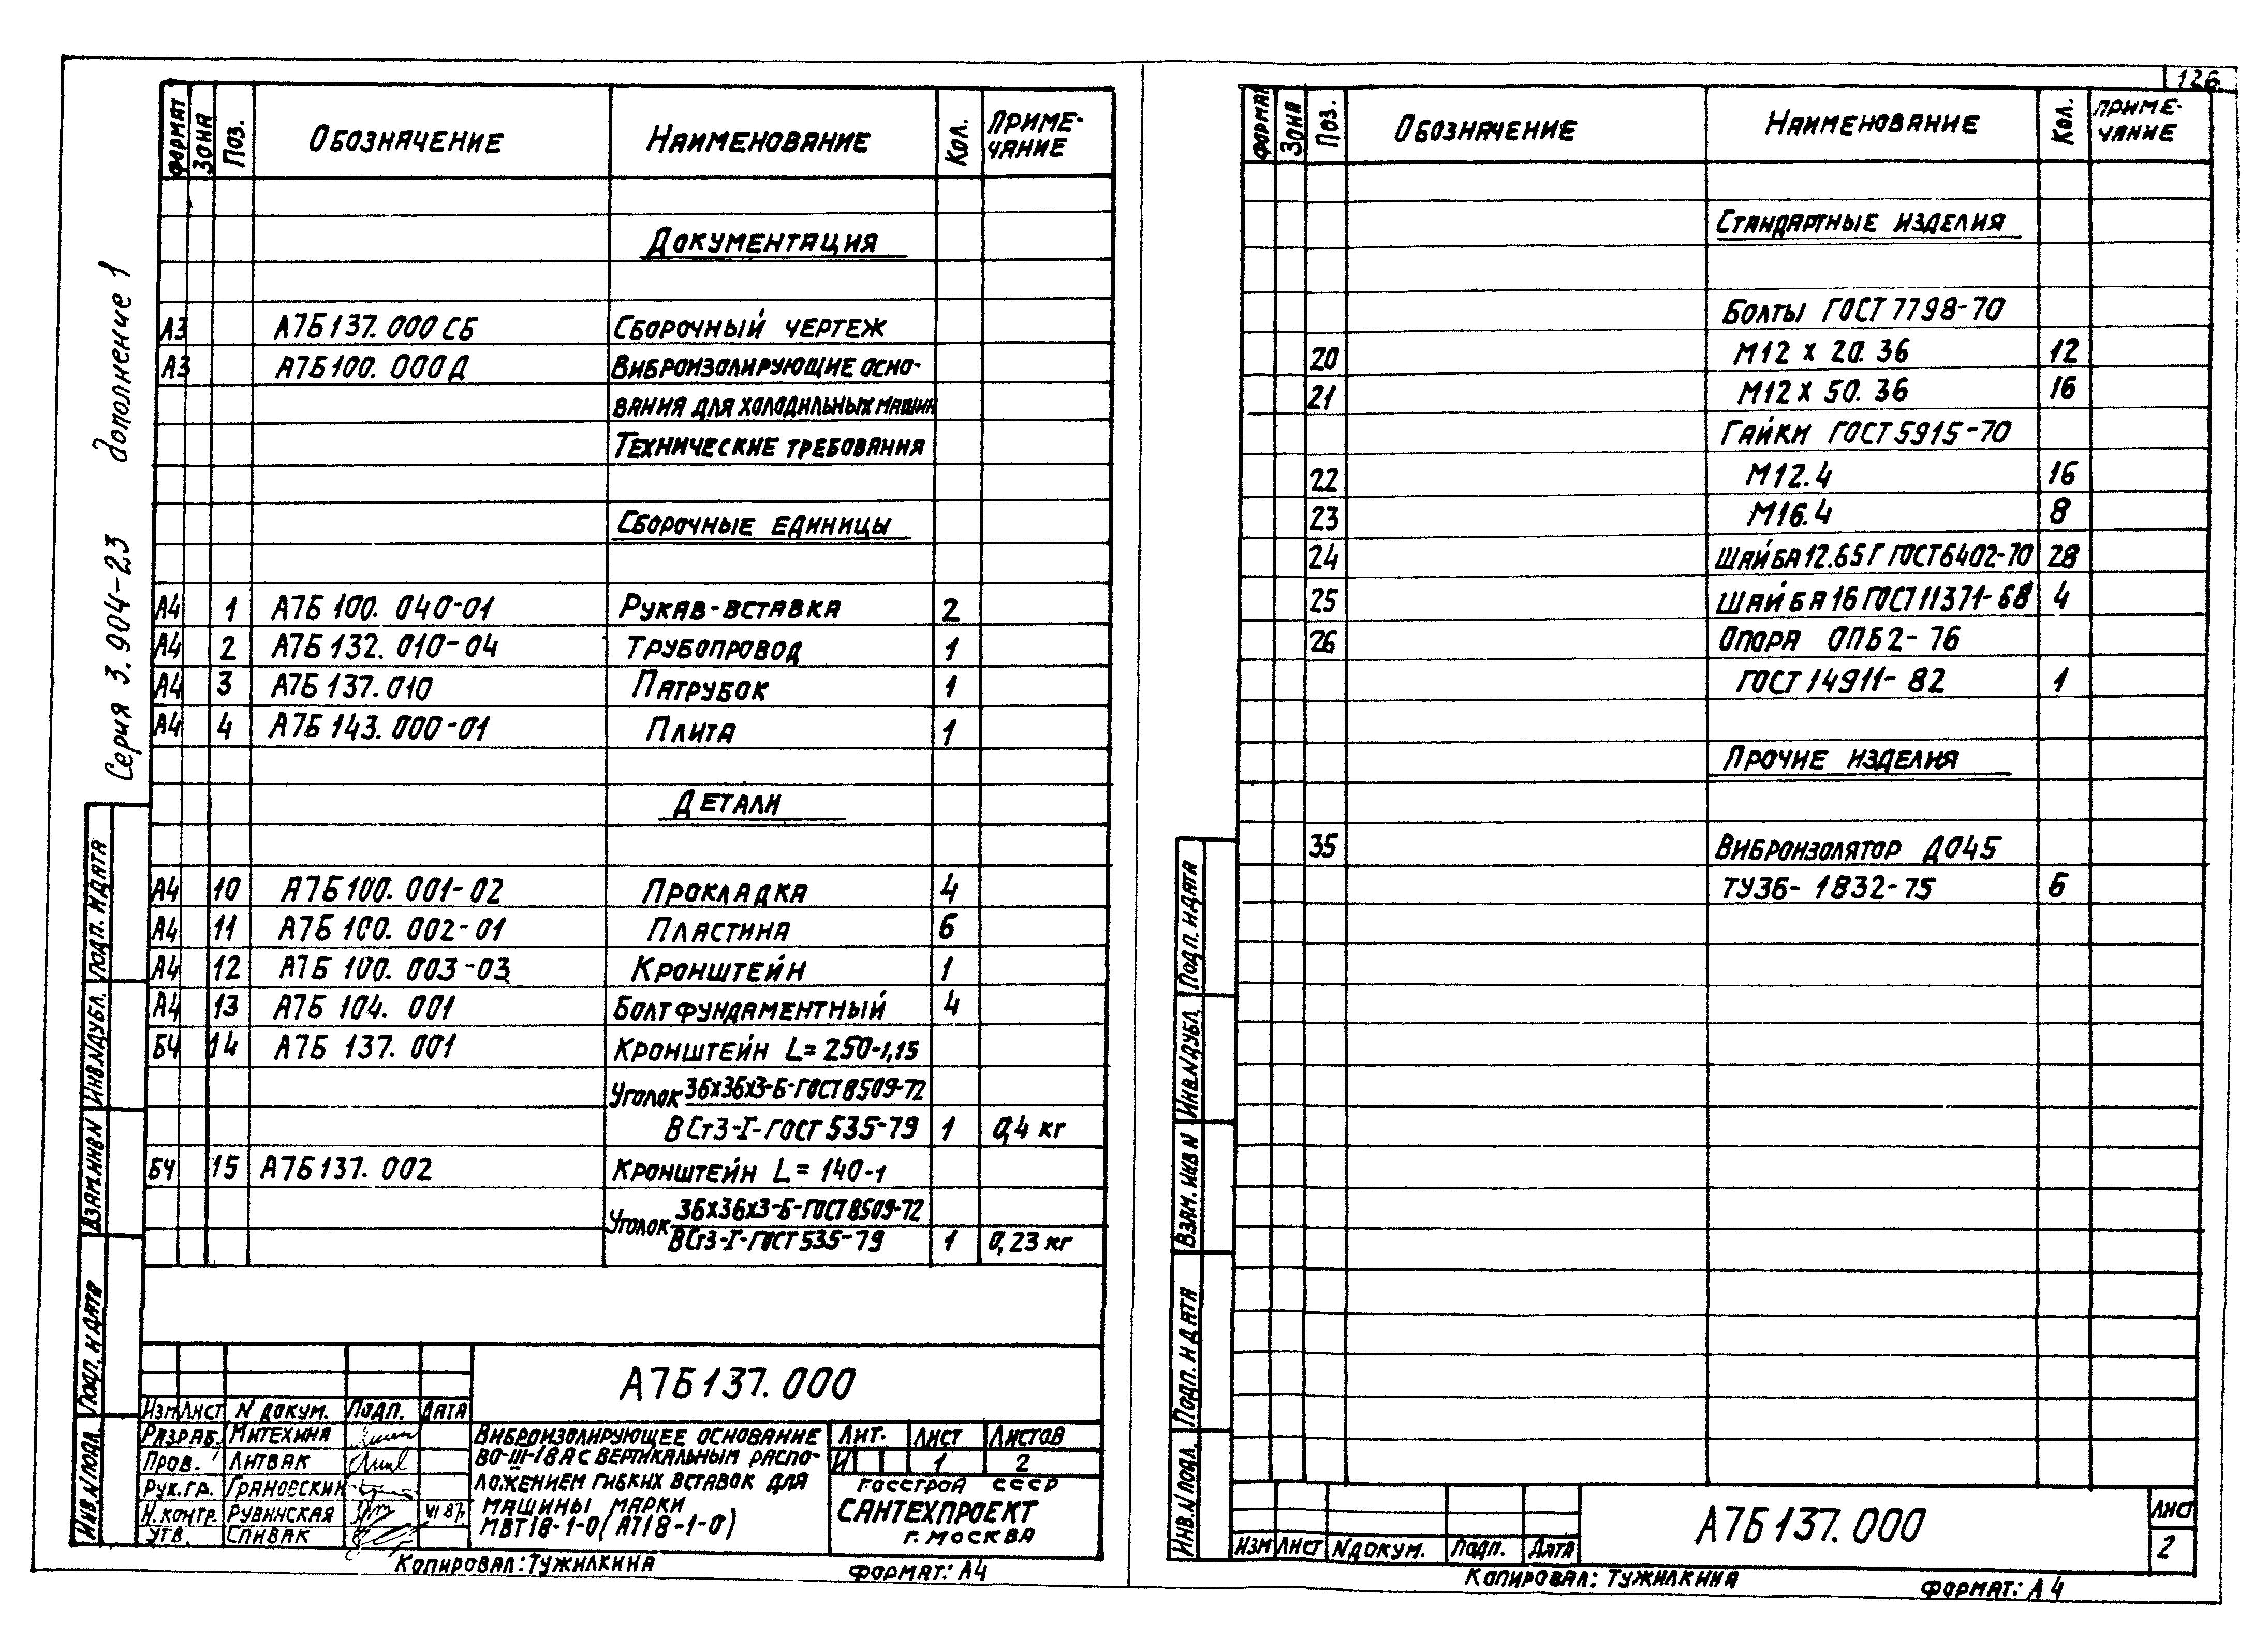 126
Серия 3.904-23 дополнение 1
Формат Зона Поз. Обозначение Наименование Кол. Приме-
чание
Документация
А3 А7Б137.000 СБ Сборочный чертеж
А3 А7Б100.000Д Виброизолирующие осно-
вания для холодильных машин
Технические требования
Сборочные единицы
А4 1 А7Б 100.040-01 Рукав-вставка 2
А4 2 А7Б 132.010-04 Трубопровод 1
А4 3 А7Б 137.010 Патрубок 1
А4 4 А7Б 143.000-01 Плита 1
Детали
А4 10 А7Б100.001-02 Прокладка 4
А4 11 А7Б 100.002-01 Пластина 6
А4 12 А7Б 100.003-03 Кронштейн 1
А4 13 А7Б 104.001 Болт фундаментный 4
БЧ 14 А7Б 137.001 Кронштейн L=250-1,15
Уголок 36х36х3-Б-ГОСТ8509-72
ВСт3-I-ГОСТ 535-79 1 0,4 кг
БЧ 15 А7Б137.002 Кронштейн L=140-1
Уголок 36х36х3-Б-ГОСТ8509-72
ВСт3-I-ГОСТ535-79 1 0,23 кг
Инв.N подл. Подп. и дата Взам.инв N Инв.N дубл. Подп. и дата
А7Б137.000
Изм Лист N докум. Подп. Дата
Разраб. Митехина
Пров. Литвак
Рук.гр. Грановский
Н.контр. Рувинская VI 87г
Утв. Спивак
Виброизолирующее основание
ВО-III-18А с вертикальным распо-
ложением гибких вставок для
машины марки
МВТ18-1-0 (АТ18-1-0)
Лит. Лист Листов
И 1 2
Госстрой СССР
САНТЕХПРОЕКТ
г. Москва
Копировал: Тужилкина Формат: А4
Формат Зона Поз. Обозначение Наименование Кол. Приме-
чание
Стандартные изделия
Болты ГОСТ 7798-70
20 М12 х 20.36 12
21 М12 х 50.36 16
Гайки ГОСТ 5915-70
22 М12.4 16
23 М16.4 8
24 Шайба 12.65Г ГОСТ6402-70 28
25 Шайба 16 ГОСТ11371-68 4
26 Опора ОПБ2-76
ГОСТ 14911-82 1
Прочие изделия
35 Виброизолятор ДО45
ТУ36-1832-75 6
Инв.N подл. Подп. и дата Взам. инв N Инв.N дубл. Подп. и дата
Изм Лист N докум. Подп. Дата
А7Б137.000
Лист
2
Копировал: Тужилкина Формат: А4